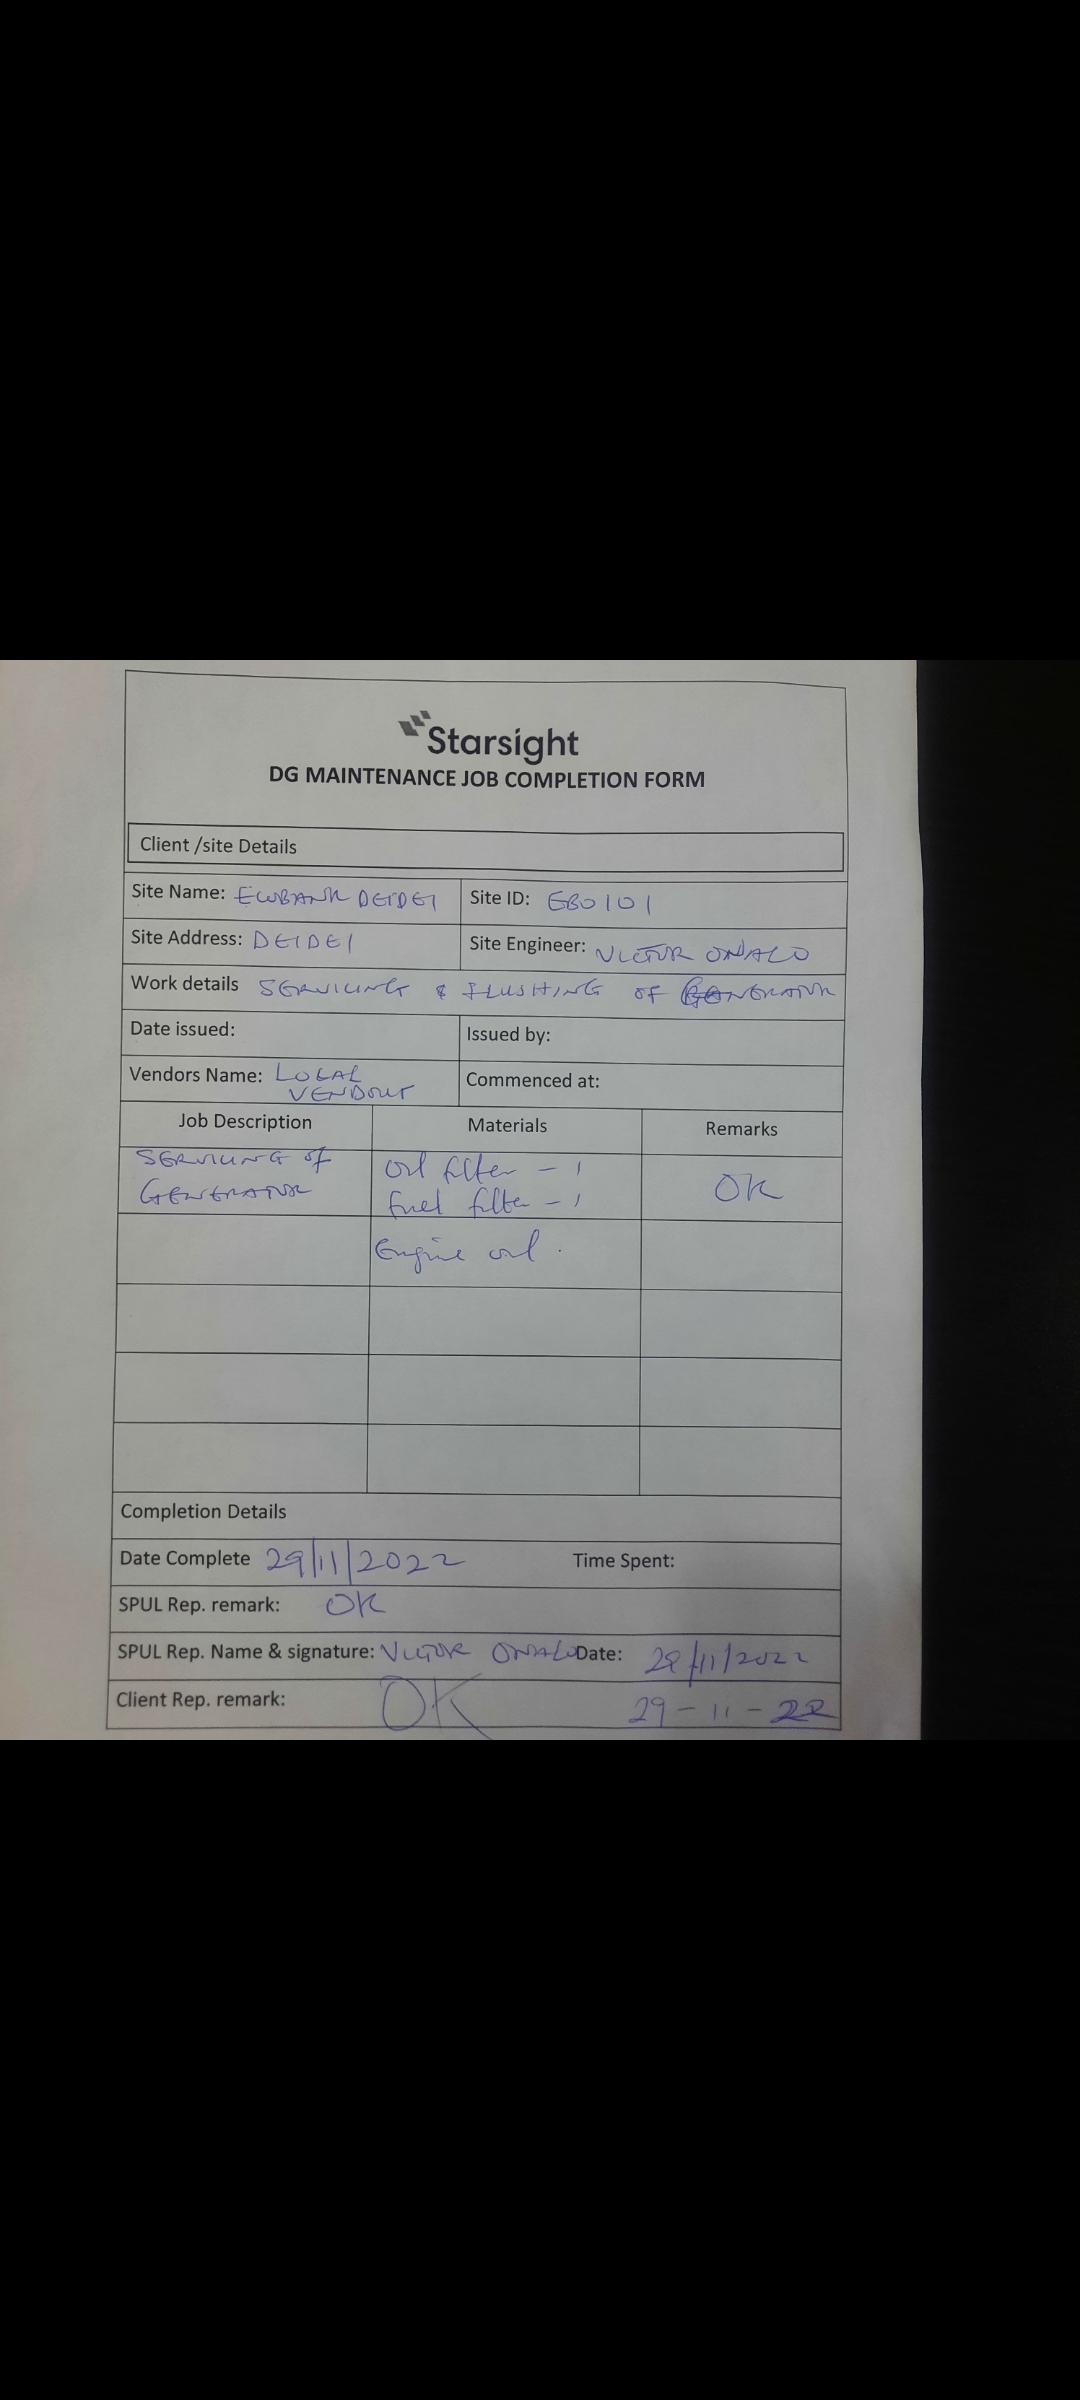 Starsight
DG MAINTENANCE JOB COMPLETION FORM
Client /site Details
Site Name: ECOBANK DEIDEI Site ID: EBO101
Site Address: DEIDEI Site Engineer: VICTOR ONALO
Work details SERVICING & FLUSHING OF GENERATOR
Date issued: Issued by:
Vendors Name: LOCAL Commenced at:
VENDOUR
Job Description Materials Remarks
SERVICING of Oil filter - 1 OK
GENERATOR fuel filter - 1
Engine oil.
Completion Details
Date Complete 29/11/2022 Time Spent:
SPUL Rep. remark: OK
SPUL Rep. Name & signature: VICTOR ONALO Date: 29/11/2022
Client Rep. remark: OK 29-11-22